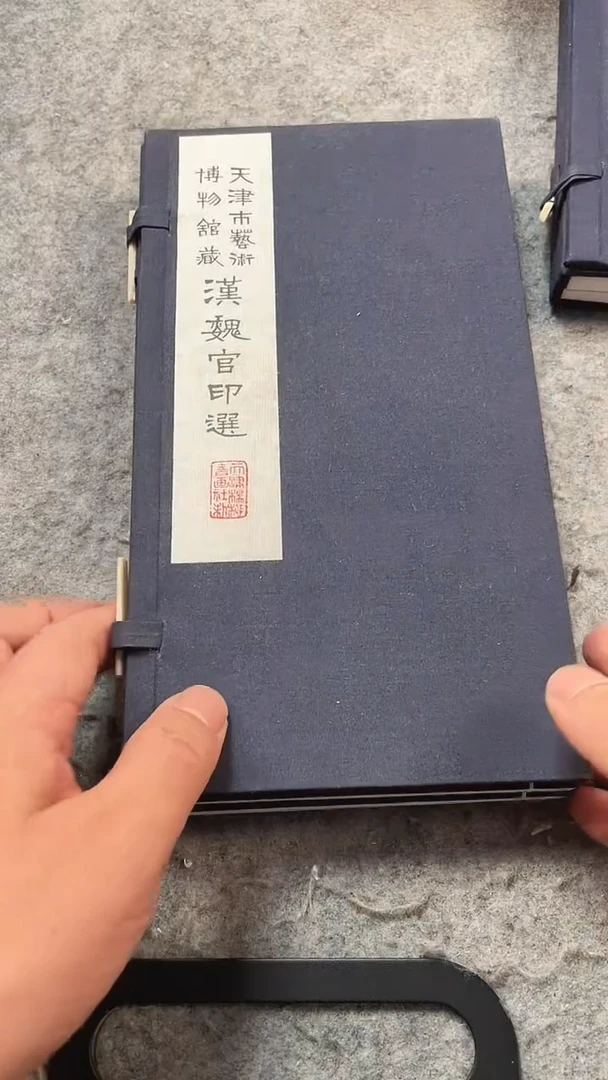 天津市藝術
博物館藏
漢魏官印選